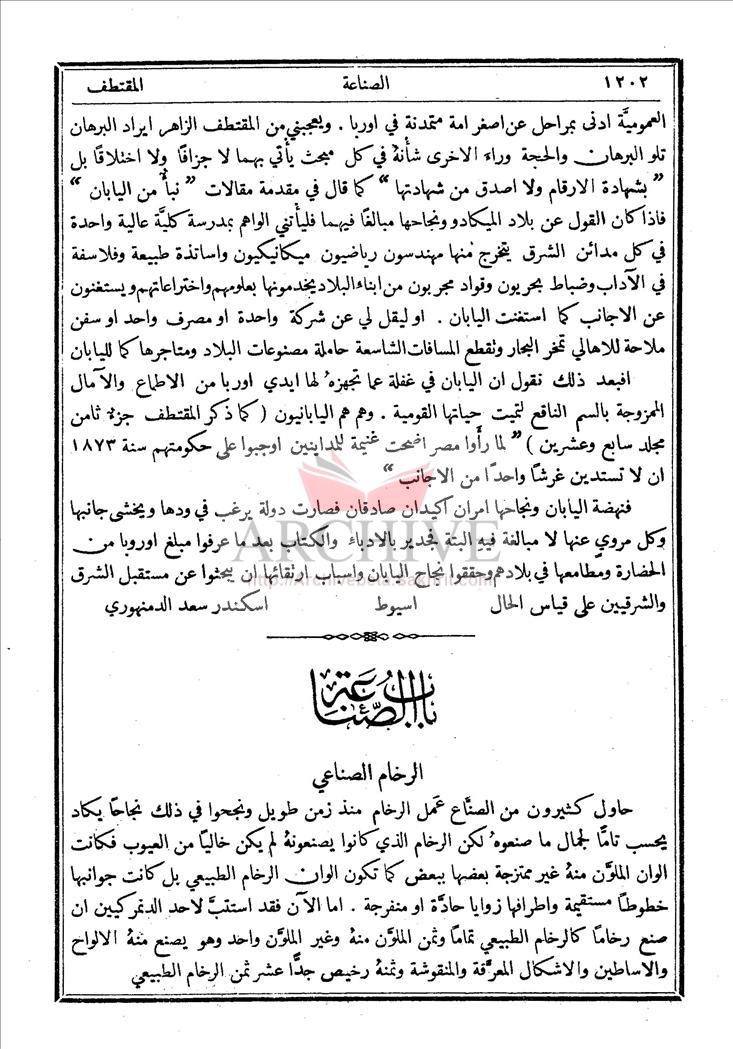 ١٢٠٢ الصناعة المقتطف
العموميَّة ادنى بمراحل عن اصغر امة متمدنة في اوربا . ويعجبني من المقتطف الزاهر ايراد البرهان
تلو البرهان والحجة وراء الاخرى شأنهُ في كل مبحث يأتي بهما لا جزافًا ولا اختلاقًا بل
” بشهادة الارقام ولا اصدق من شهادتها “ كما قال في مقدمة مقالات ” نبأ من اليابان “
فاذا كان القول عن بلاد الميكادو ونجاحها مبالغًا فيهما فليأتني الواهم بمدرسة كليَّة عالية واحدة
في كل مدائن الشرق يتخرج منها مهندسون رياضيون ميكانيكيون واساتذة طبيعة وفلاسفة
في الآداب وضباط بحريون وقواد مجربون من ابناء البلاد يخدمونها بعلومهم واختراعاتهم ويستغنون
عن الاجانب كما استغنت اليابان . او ليقل لي عن شركة واحدة او مصرف واحد او سفن
ملاحة للاهالي تمخر البحار وتقطع المسافات الشاسعة حاملة مصنوعات البلاد ومتاجرها كما لليابان
افبعد ذلك نقول ان اليابان في غفلة عما تجهزهُ لها ايدي اوربا من الاطماع والآمال
الممزوجة بالسم الناقع لتميت حياتها القومية . وهم هم اليابانيون ( كما ذكر المقتطف جزءَ ثامن
مجلد سابع وعشرين ) ” لما رأوا مصر اضحت غنيمة للمداينين اوجبوا على حكومتهم سنة ١٨٧٣
ان لا تستدين غرشًا واحدًا من الاجانب “
فنهضة اليابان ونجاحها امران اكيدان صادقان فصارت دولة يرغب في ودها ويخشى جانبها
وكل مروي عنها لا مبالغة فيه البتة فجدير بالادباء والكتاب بعد ما عرفوا مبلغ اوروبا من
الحضارة ومطامعها في بلادهم وحققوا نجاح اليابان واسباب ارتقائها ان يبحثوا عن مستقبل الشرق
والشرقيين على قياس الحال اسيوط اسكندر سعد الدمنهوري
باب الصناعة
الرخام الصناعي
حاول كثيرون من الصنَّاع عمل الرخام منذ زمن طويل ونجحوا في ذلك نجاحًا يكاد
يحسب تامًّا لجمال ما صنعوهُ لكن الرخام الذي كانوا يصنعونهُ لم يكن خاليًا من العيوب فكانت
الوان الملوَّن منهُ غير ممتزجة بعضها ببعض كما تكون الوان الرخام الطبيعي بل كانت جوانبها
خطوطًا مستقيمة واطرافها زوايا حادَّة او منفرجة . اما الآن فقد استتبَّ لاحد الدنمركيين ان
صنع رخامًا كالرخام الطبيعي تمامًا وثمن الملوَّن منهُ وغير الملوَّن واحد وهو يصنع منهُ الالواح
والاساطين والاشكال المعرَّقة والمنقوشة وثمنهُ رخيص جدًّا عشر ثمن الرخام الطبيعي
ARCHIVE